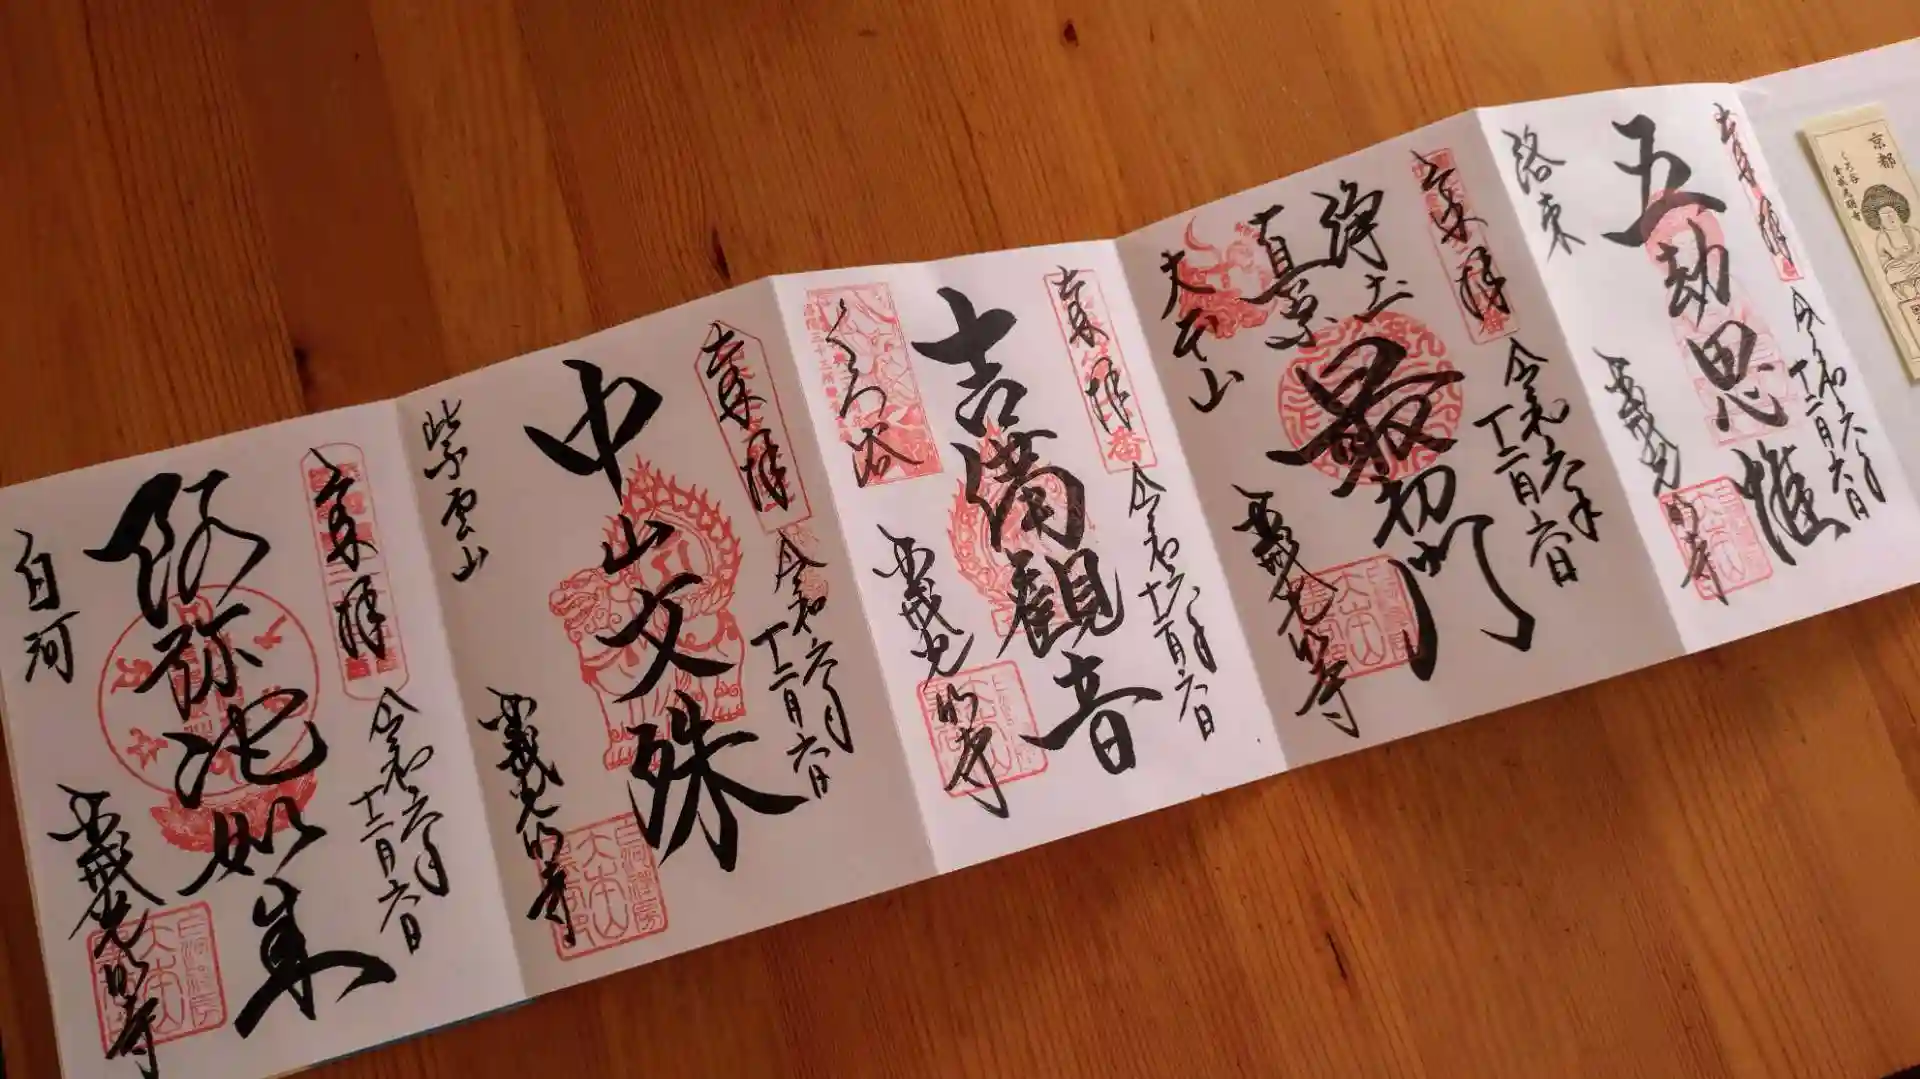 京都
くろ谷
金戒光明寺
奉拝
令和六年
十二月六日
五劫思惟
洛東
金戒光明寺
奉拝
令和六年
十二月六日
浄土
真宗
最初門
大不山
金戒光明寺
奉拝
令和六年
十二月六日
吉備観音
くろ谷
金戒光明寺
奉拝
令和六年
十二月六日
中山文殊
紫雲山
金戒光明寺
奉拝
令和六年
十二月六日
阿弥陀如来
白河
金戒光明寺